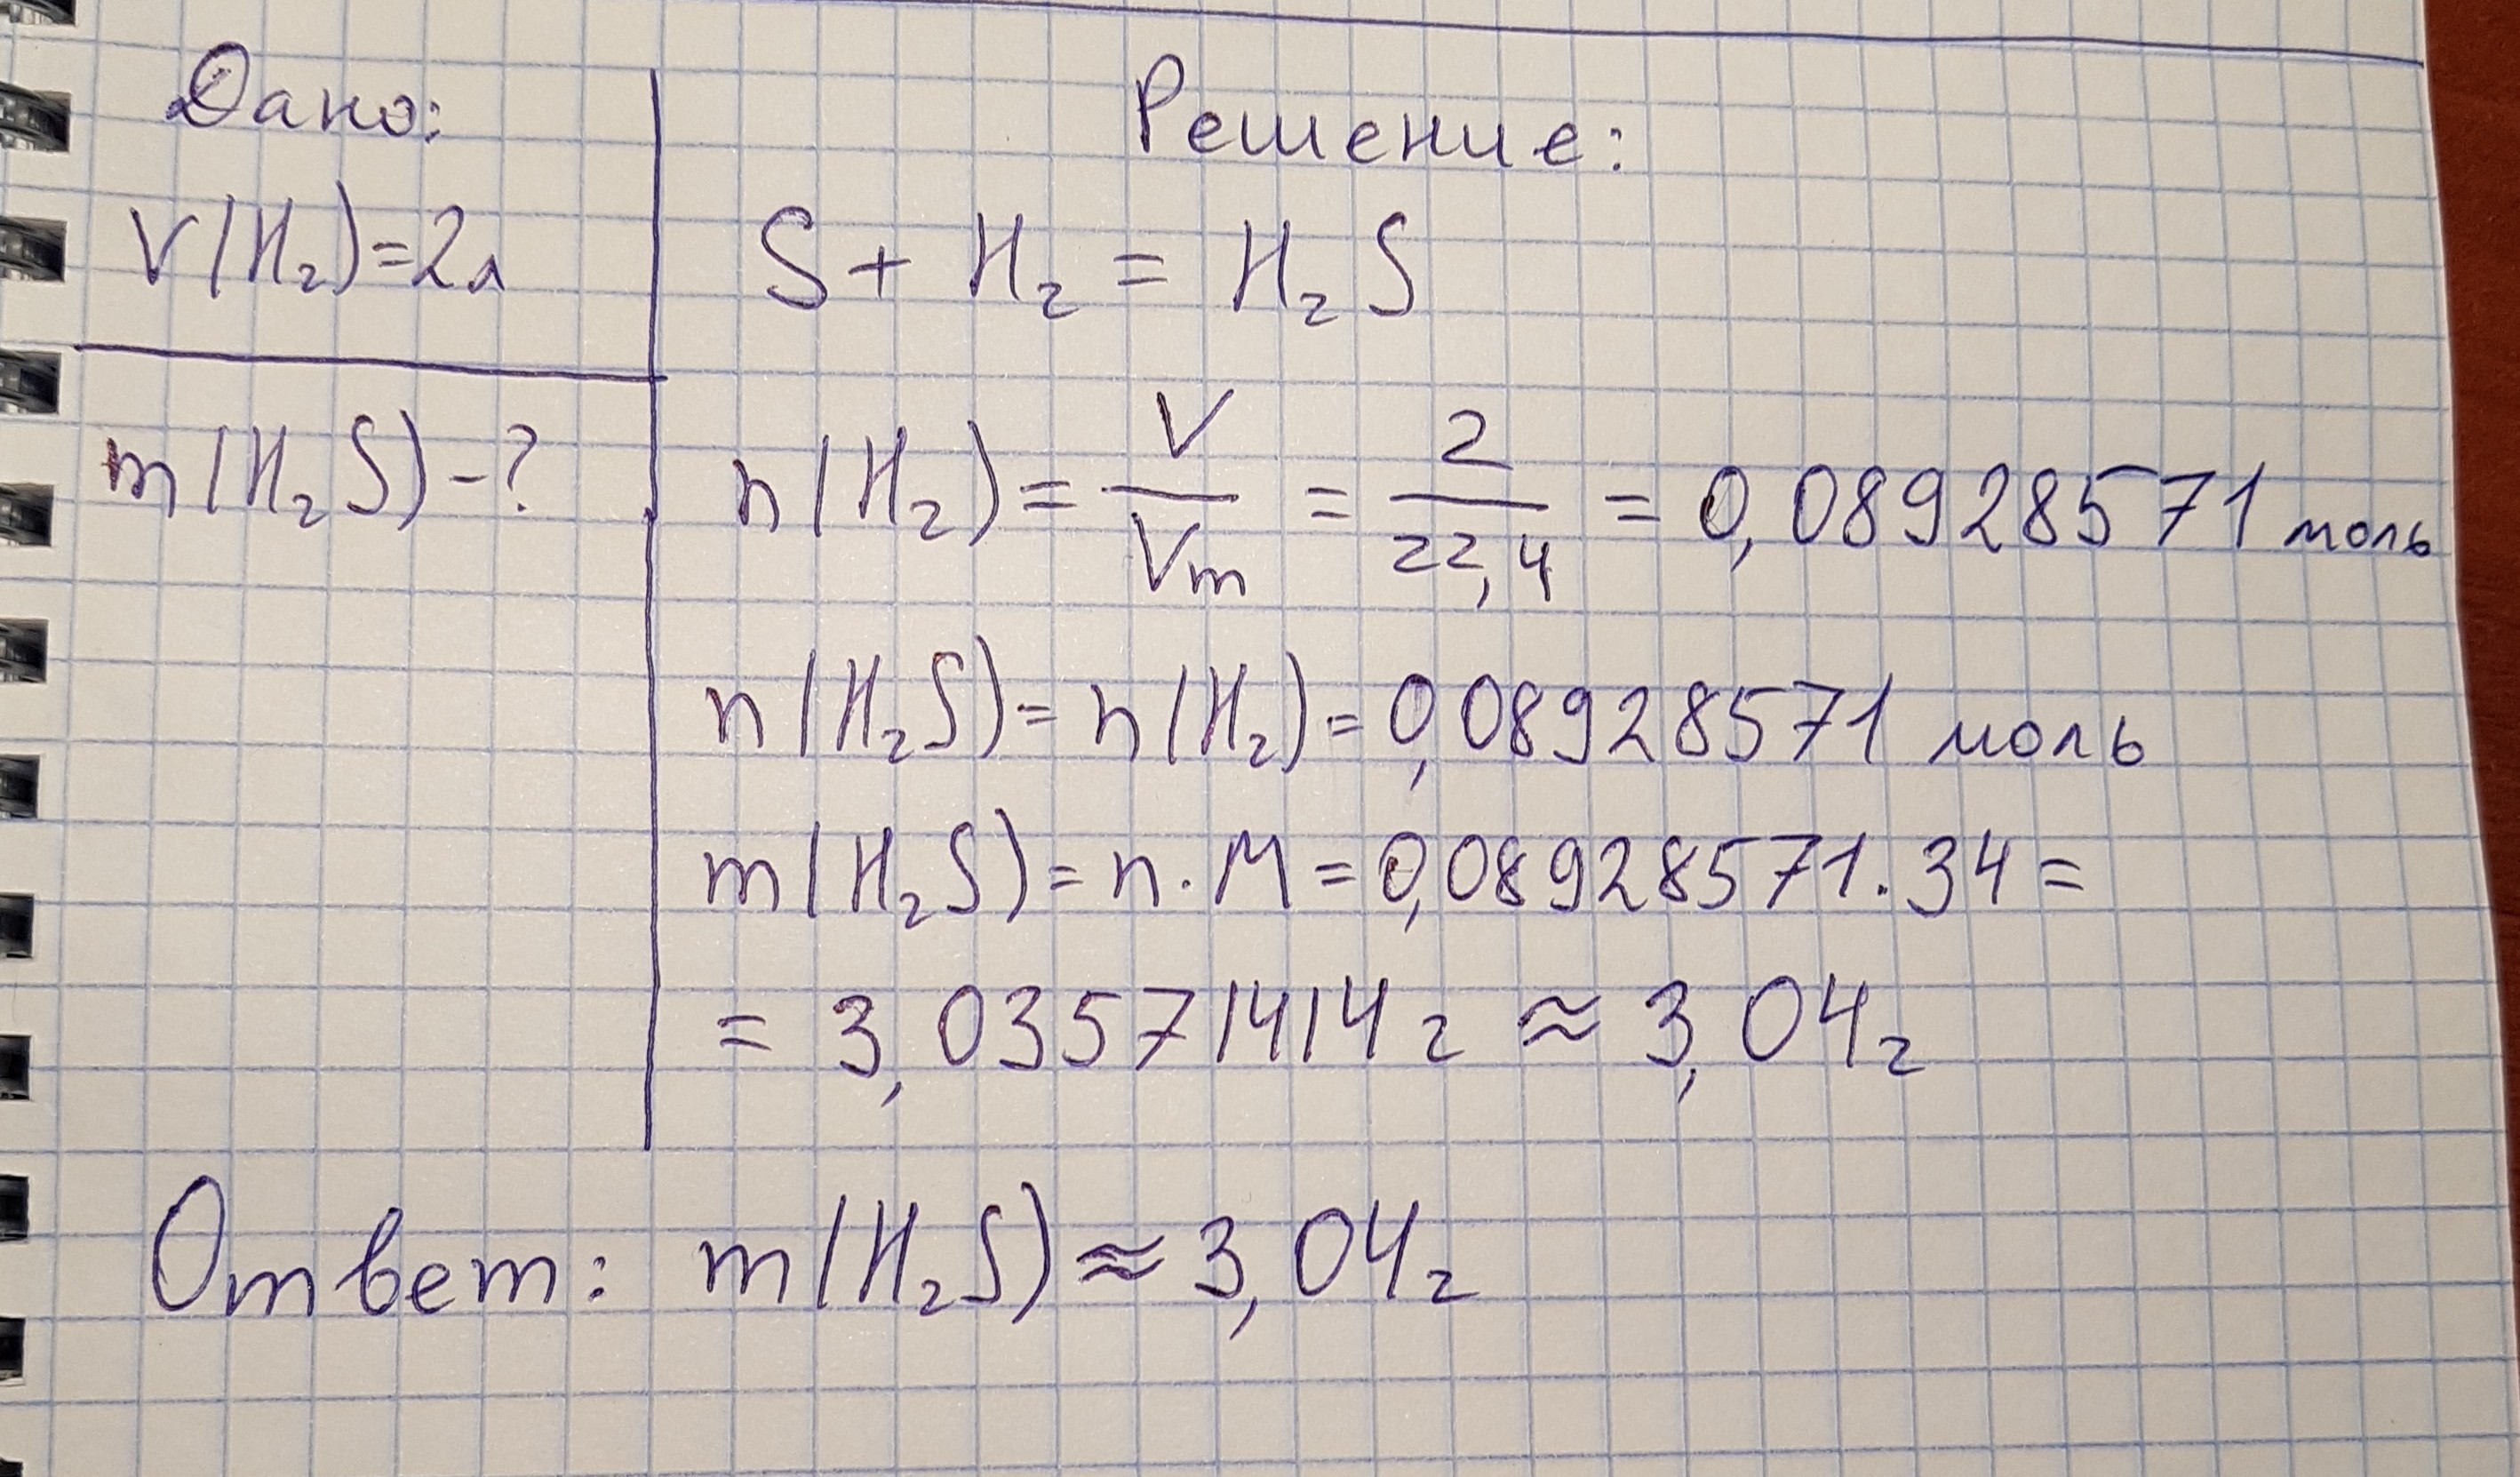 Дано:
V(H₂)=2л
m(H₂S)-?
Решение:
S + H₂ = H₂S
n(H₂) = V/Vm = 2/22,4 = 0,08928571 моль
n(H₂S) = n(H₂) = 0,08928571 моль
m(H₂S) = n · M = 0,08928571 · 34 =
= 3,03571414 г ≈ 3,04 г
Ответ: m(H₂S) ≈ 3,04 г